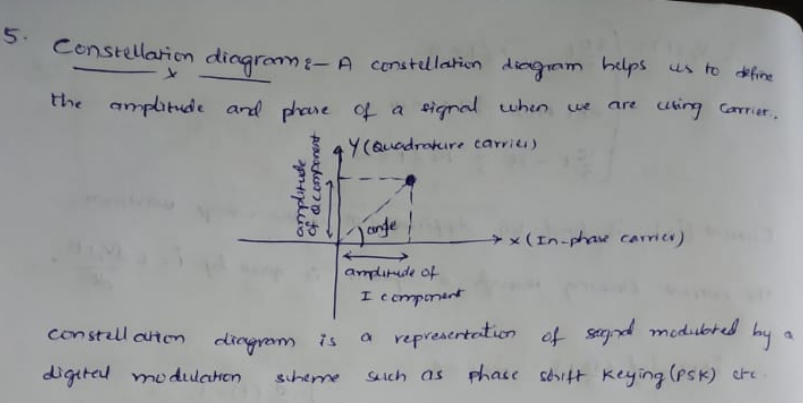 5. Constellation diagram :- A constellation diagram helps us to define
the amplitude and phase of a signal when we are using carrier.
Y (Quadrature carrier)
amplitude
of Q component
angle
X (In-phase carrier)
amplitude of
I component
constellation diagram is a representation of signal modulated by a
digital modulation scheme such as phase shift keying (PSK) etc